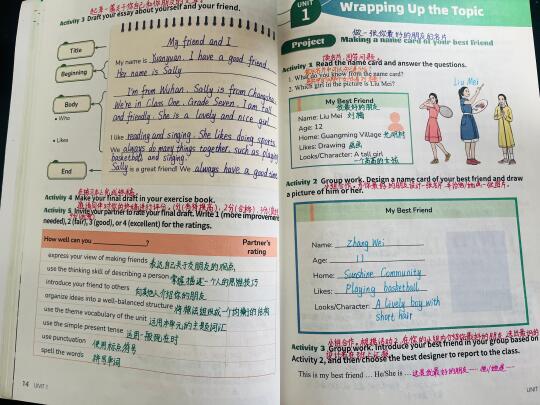 Activity 3 Draft your essay about yourself and your friend.
Title
Beginning
Body
• Who
• Likes
End
My friend and I
My name is Yuanyuan. I have a good friend.
Her name is Sally.
I'm from Wuhan. Sally is from Changsha.
We're in Class One, Grade Seven. I am tall
and friendly. She is a lovely and nice girl.
I like reading and singing. She likes doing sports.
We always do many things together, such as playing
basketball and singing.
Sally is a great friend! We always have a good time.
Activity 4 Make your final draft in your exercise book.
Activity 5 Invite your partner to rate your final draft. Write 1 (more improvement
needed), 2 (fair), 3 (good), or 4 (excellent) for the ratings.
How well can you ______? Partner's rating
express your view of making friends 表达自己关于交朋友的观点
use the thinking skill of describing a person 掌握描述一个人的思维技巧
introduce your friend to others 向其他人介绍你的朋友
organize ideas into a well-balanced structure 将想法组织成一个均衡的结构
use the theme vocabulary of the unit 运用本单元的主题词汇
use the simple present tense 运用一般现在时
use punctuation 使用标点符号
spell the words 拼写单词
14 UNIT 1
UNIT 1
Wrapping Up the Topic
做一张你最好的朋友的名片
Project Making a name card of your best friend
Activity 1 Read the name card and answer the questions.
1. What do you know from the name card?
2. Which girl in the picture is Liu Mei?
My Best Friend
我最好的朋友
Name: Liu Mei 刘梅
Age: 12
Home: Guangming Village 光明村
Likes: Drawing 画画
Looks/Character: A tall girl
一个高高的女孩
Liu Mei
Activity 2 Group work. Design a name card of your best friend and draw
a picture of him or her.
My Best Friend
Name: Zhang Wei
Age: 11
Home: Sunshine Community
Likes: Playing basketball
Looks/Character: A lively boy with
short hair
Activity 3 Group work. Introduce your best friend in your group based on
Activity 2, and then choose the best designer to report to the class.
This is my best friend ... He/She is ... 这是我最好的朋友……他/她是……
UNIT